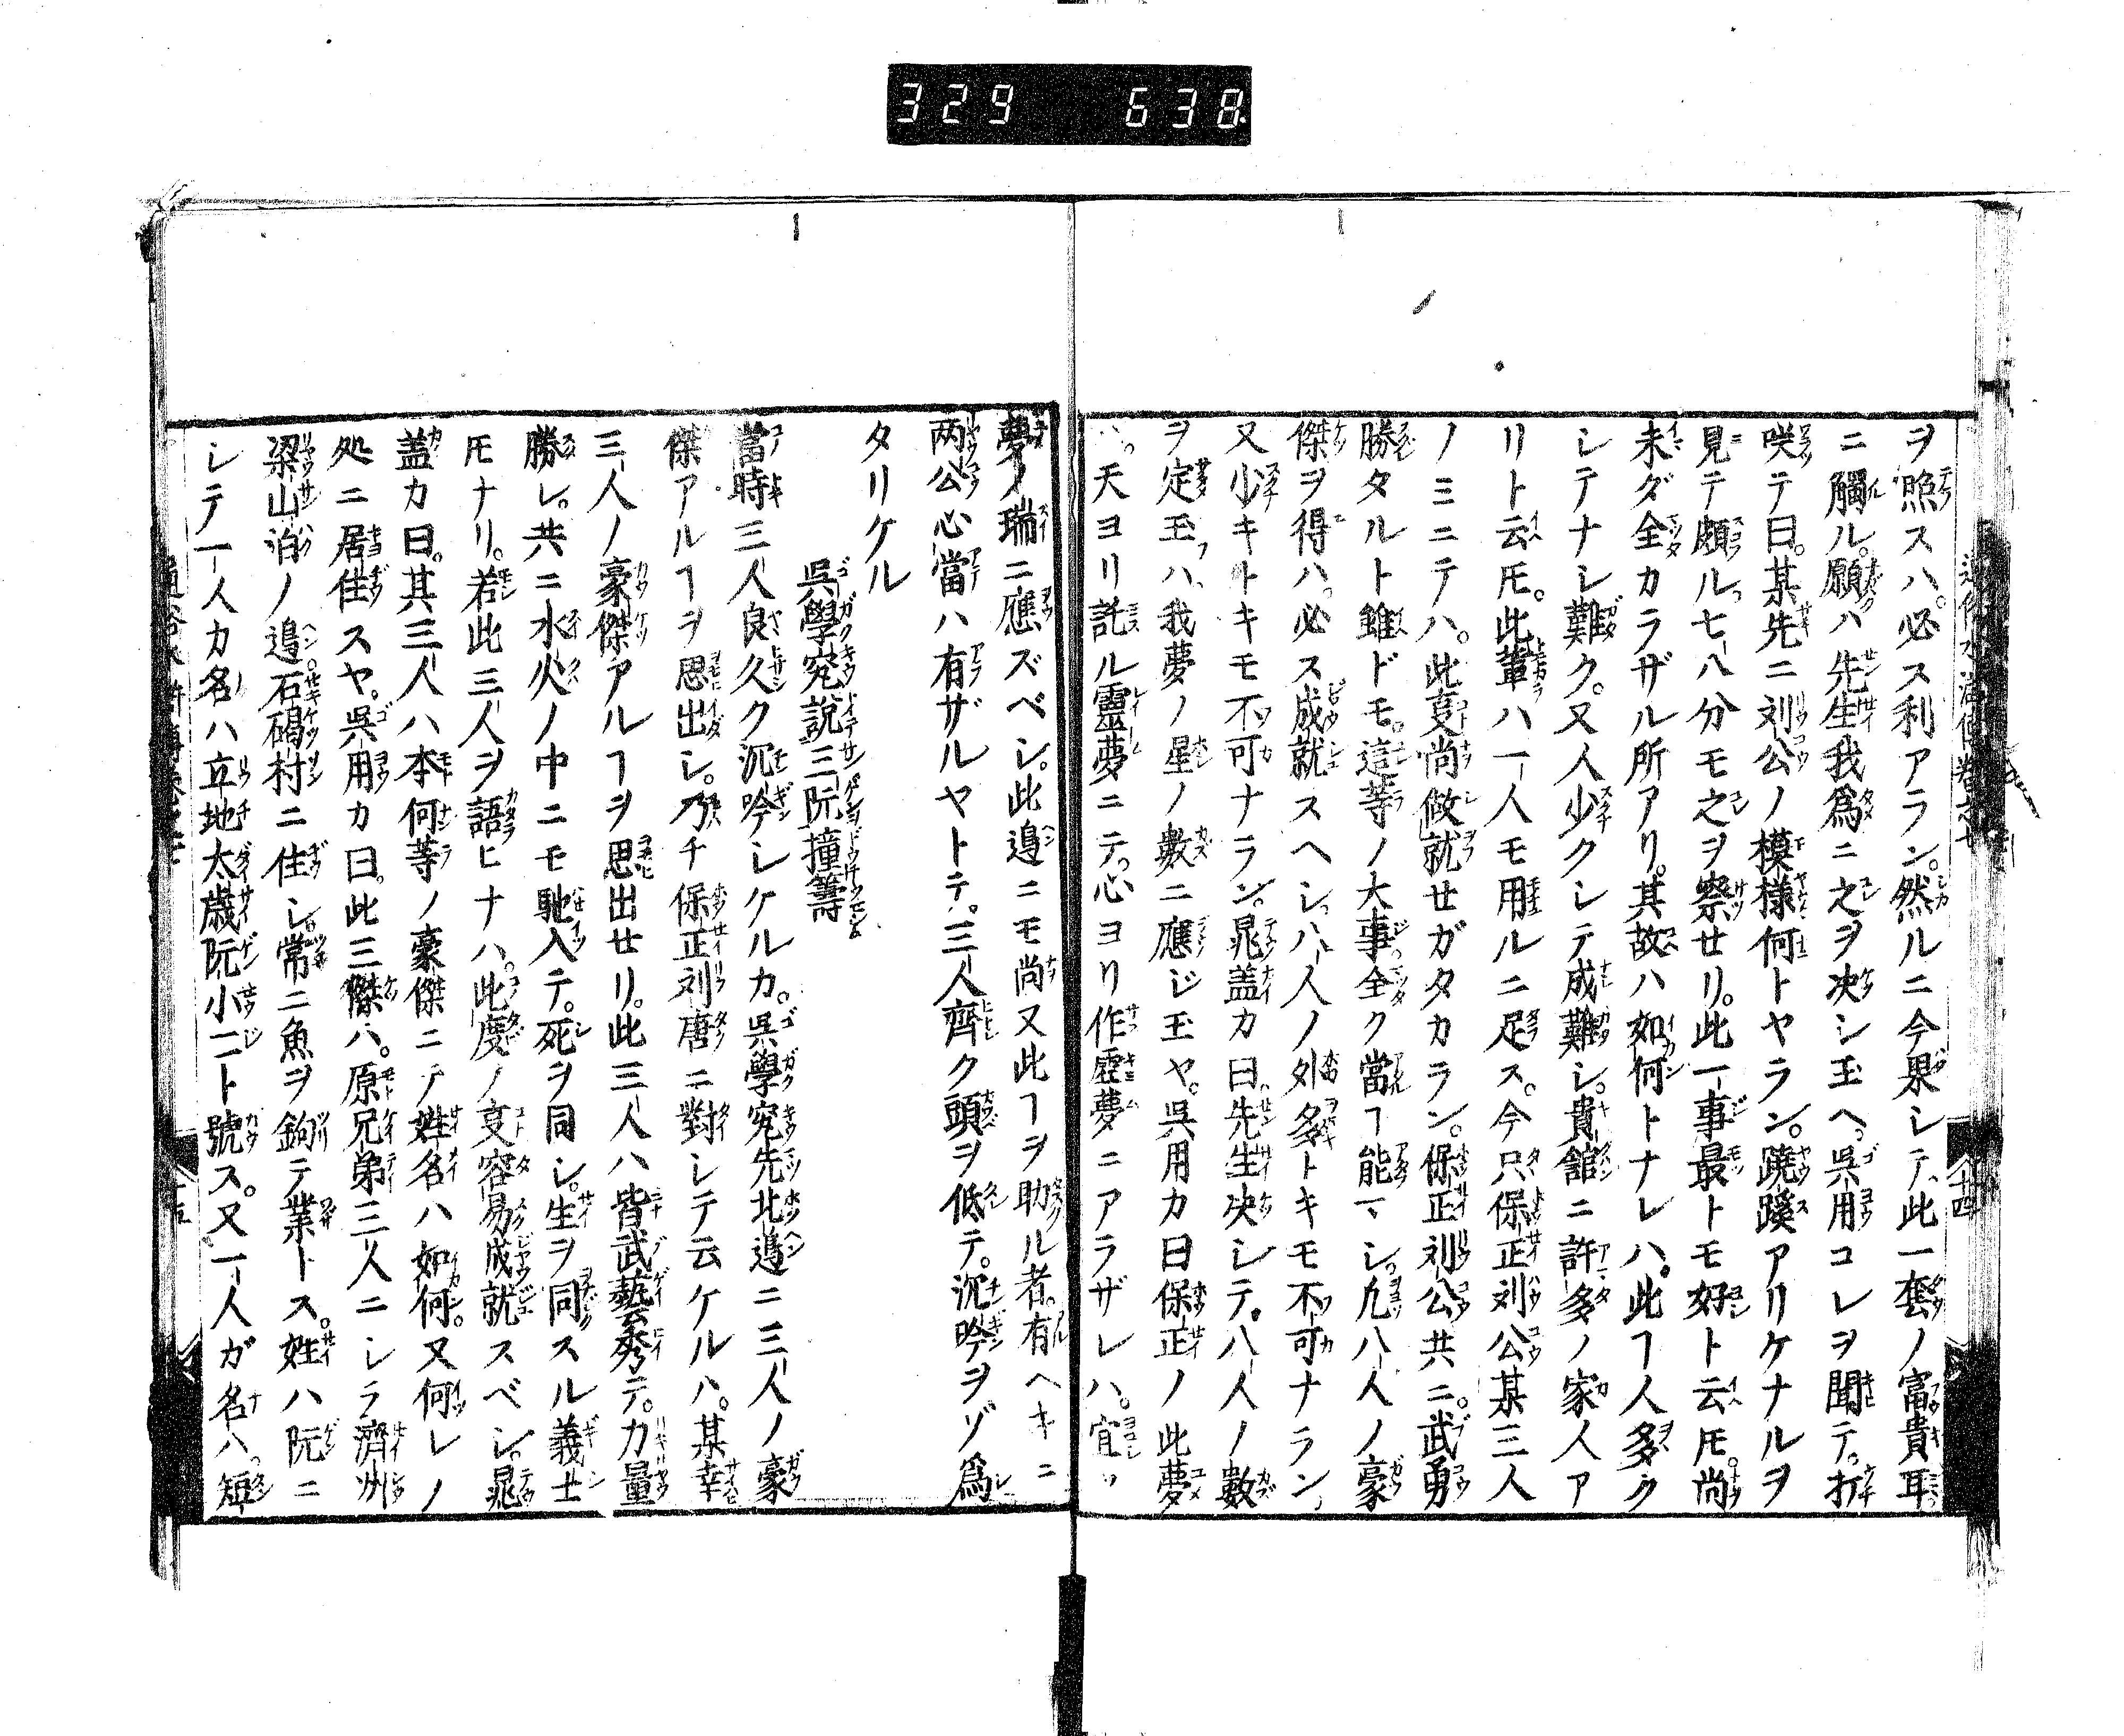 329 638
ヲ照スハ。必ス利アラン。然ルニ今果シテ、此一套ノ富貴耳
ニ觸ル。願ハ先生我爲ニ之ヲ决シ玉ヘ。呉用コレヲ聞テ。打
咲テ曰。某先ニ刘公ノ模様何トヤラン。蹺蹊アリケナルヲ
見テ頗ル七八分モ之ヲ察セリ。此一事最トモ好ト云𪜈。尚
未ダ全カラザル所アリ。其故ハ如何トナレハ。此ヿ人多ク
シテナシ難ク。又人少クシテ成難シ。貴舘ニ許多ノ家人ア
リト云𪜈。此輩ハ一人モ用ルニ足ス。今只保正刘公某三人
ノミニテハ。此叓尚做就せガタカラン。保正刘公共ニ。武勇
勝タルト雖ドモ。這等ノ大事全ク當ヿ能ハシ。凢八人ノ豪
傑ヲ得ハ。必ス成就スヘシ。八人ノ外多トキモ不可ナラン。
又少キトキモ不可ナラン。晁盖カ曰。先生决シテ。八人ノ數
ヲ定玉フハ、我夢ノ星ノ數ニ應ジ玉ヤ。呉用カ曰保正ノ此夢
ハ。天ヨリ託ル靈夢ニテ。心ヨリ作虚夢ニアラザレハ。宜ク
夢ノ瑞ニ應ズベシ。此邉ニモ尚又此ヿヲ助ル者。有ヘキニ
两公心當ハ有ザルヤトテ。三人齊ク頭ヲ低テ。沉吟ヲゾ爲
タリケル
呉學究說三阮撞籌
當時三人良久ク沉吟シケルカ。呉學究先北邉ニ三人ノ豪
傑アルヿヲ思出シ。乃チ保正刘唐ニ對シテ云ケルハ。某幸
三人ノ豪傑アルヿヲ思出せリ。此三人ハ皆武藝秀テ。力量
勝レ。共ニ水火ノ中ニモ馳入テ。死ヲ同シ。生ヲ同スル義士
𪜈ナリ。若此三人ヲ語ヒナハ。此度ノ叓容易成就スベシ。晁
盖カ曰。其三人ハ本何等ノ豪傑ニテ姓名ハ如何。又何レノ
処ニ居住スヤ。呉用カ曰。此三傑ハ。原兄弟三人ニシラ濟州
梁山泊ノ邉。石碣村ニ住シ。常ニ魚ヲ鉤テ業トス。姓ハ阮ニ
シテ一人カ名ハ立地太歳阮小二ト號ス。又一人ガ名ハ。短